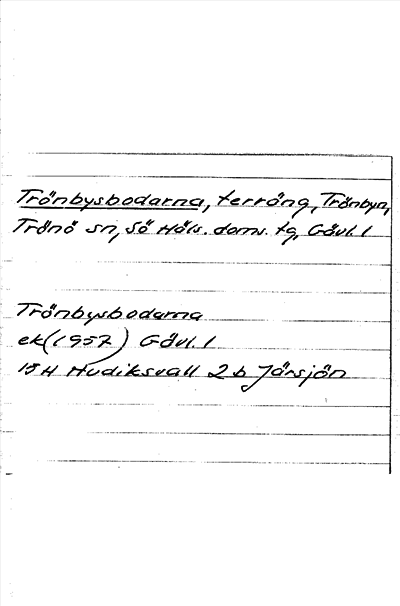 Trönbysbodarna, terräng, Trönbyn,
Trönö sn, Sö Häls. doms. tg, Gävl. l
Trönbysbodarna
ek(1957) Gävl. l
15H Hudiksvall 2 b Järsjön